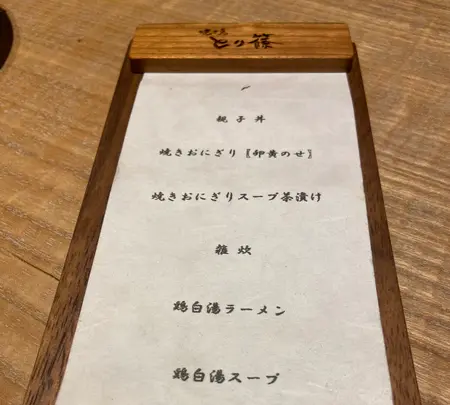 とり篠
親子丼
焼きおにぎり〖卵黄のせ〗
焼きおにぎりスープ茶漬け
雑炊
鶏白湯ラーメン
鶏白湯スープ